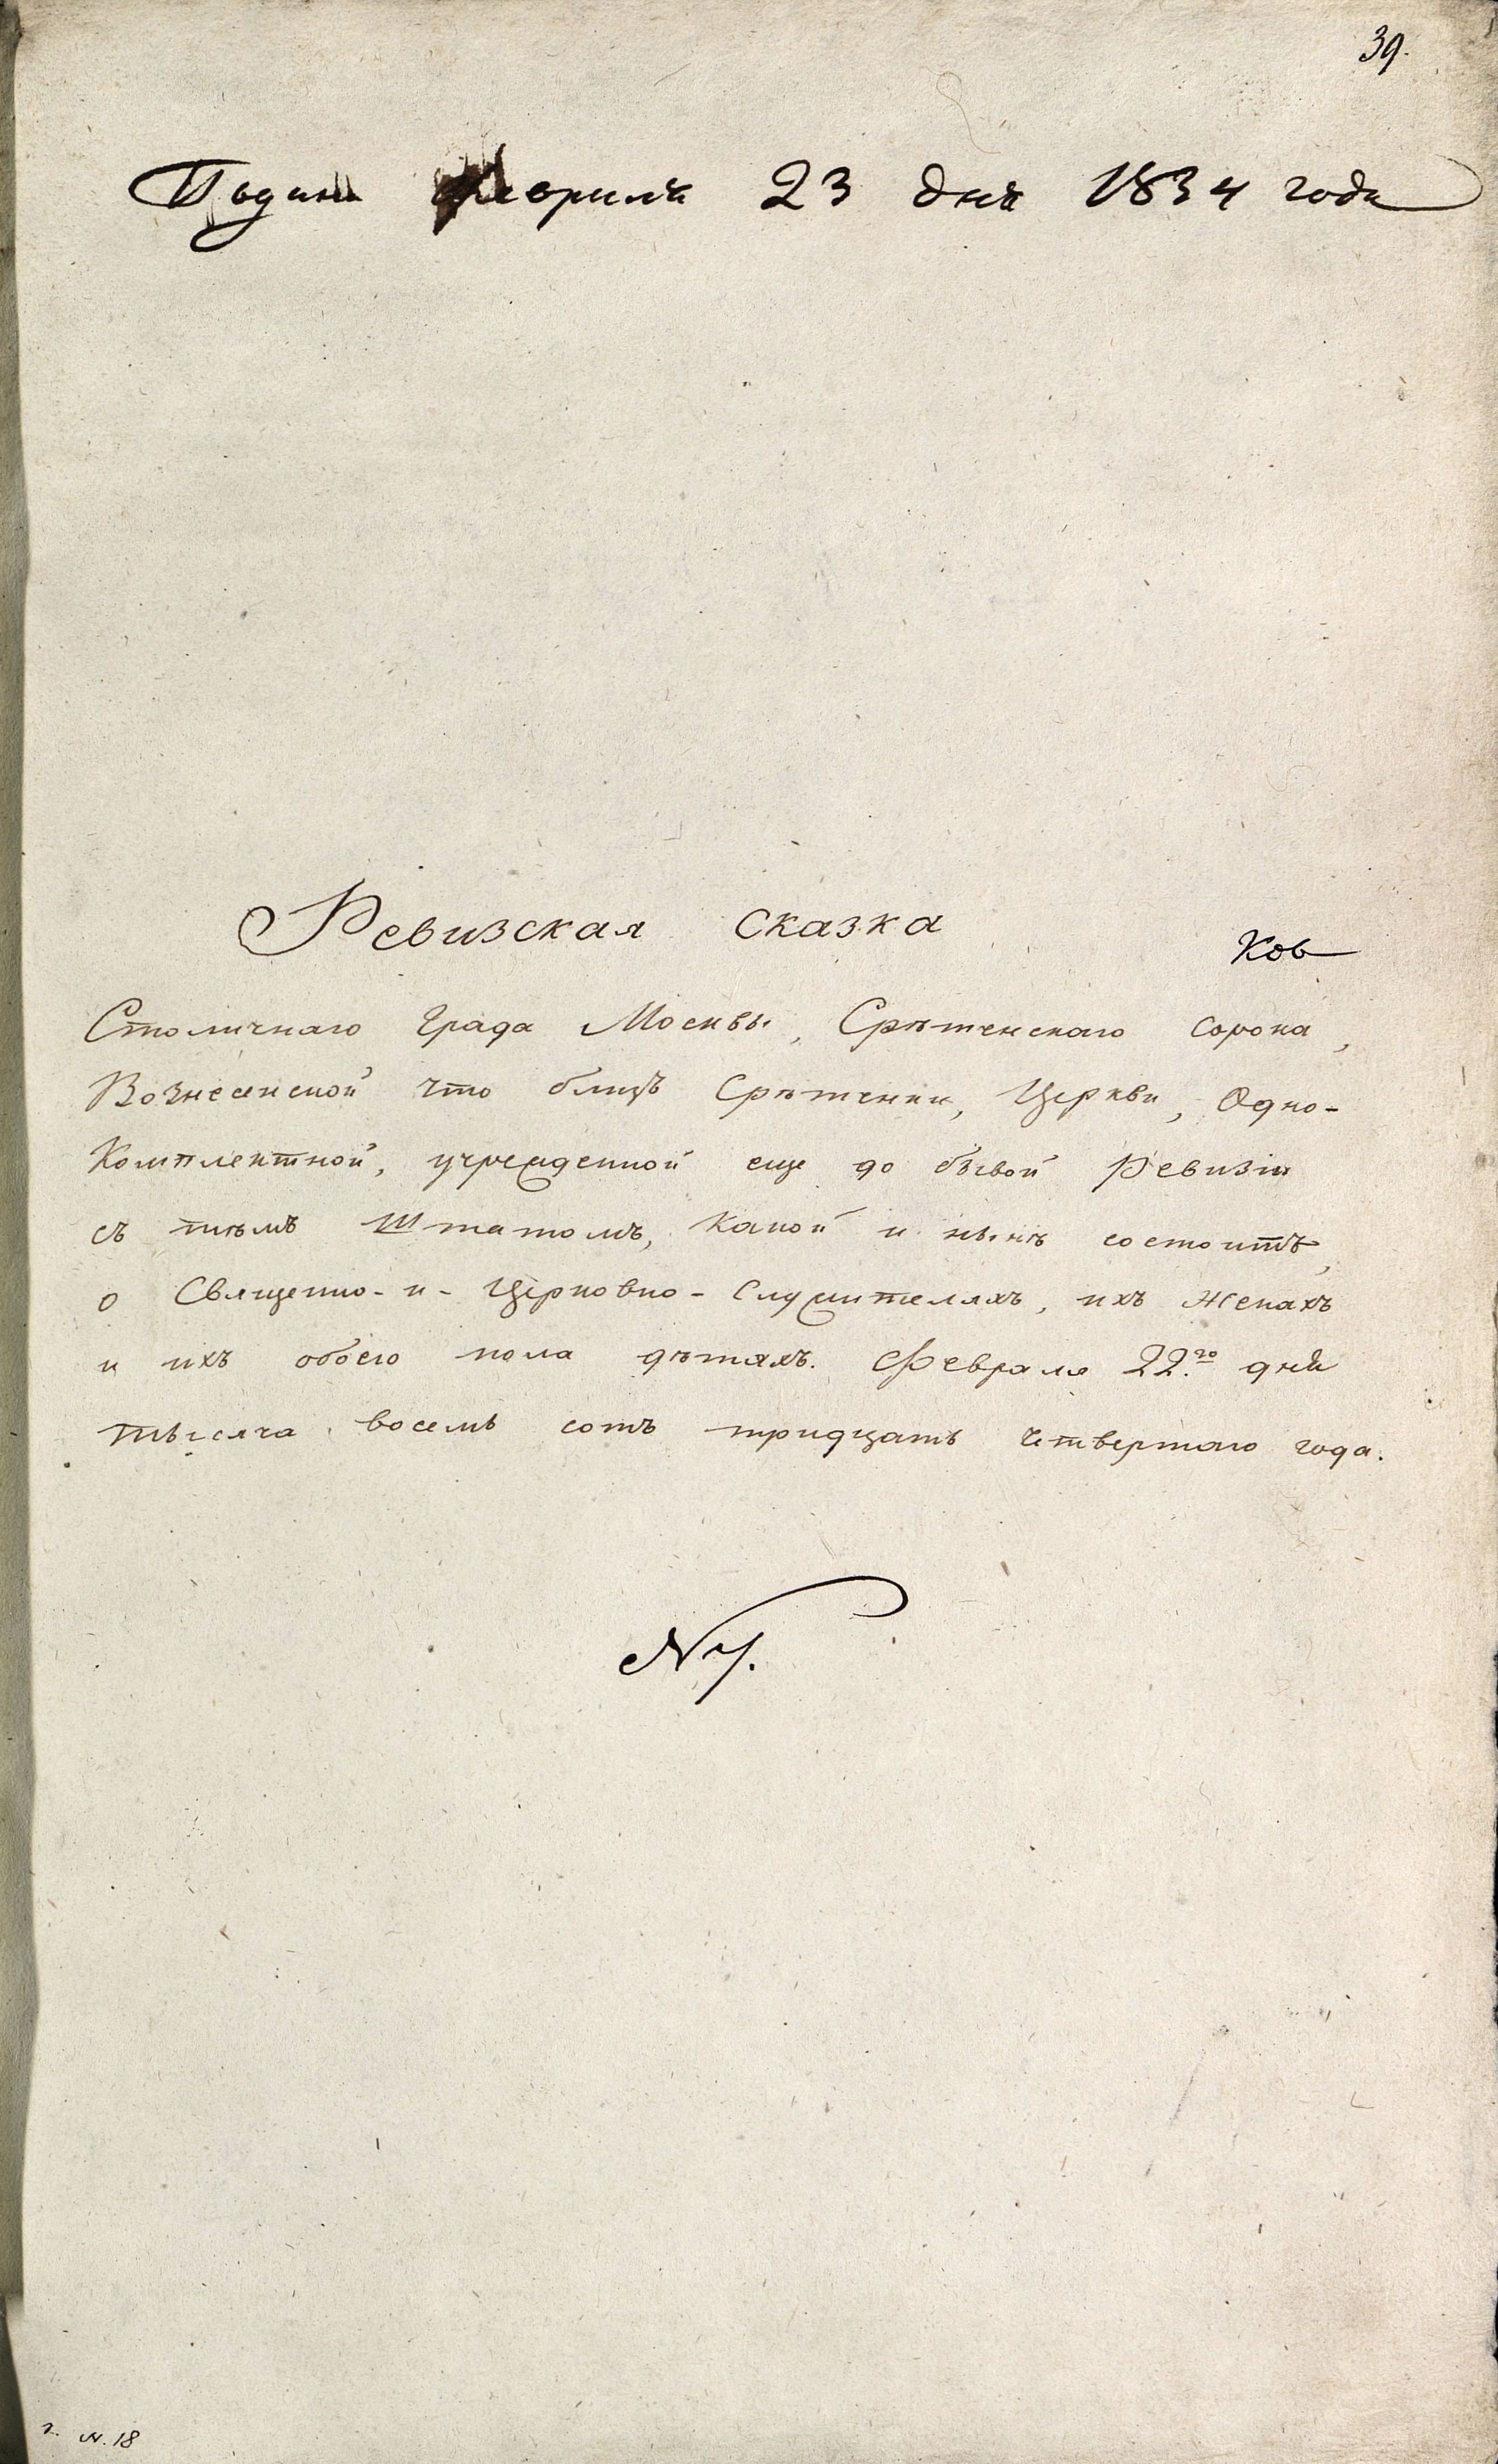 39.
Подана февраля 23 дня 1834 года
Ревизская сказка
Ков
Столичнаго Града Москвы, Срѣтенскаго сорока,
Вознесенской что близъ Срѣтенки, Церкви, Одно-
Комплектной, учрежденной еще до бывой Ревизіи
съ тѣмъ Штатомъ, какой и нынѣ состоитъ,
о Священно-и-Церковно-Служителяхъ, ихъ Женахъ
и ихъ обоего пола дѣтяхъ. Февраля 22.го дня
тысяча восемь сотъ тридцать четвертаго года.
N 7.
г. N. 18